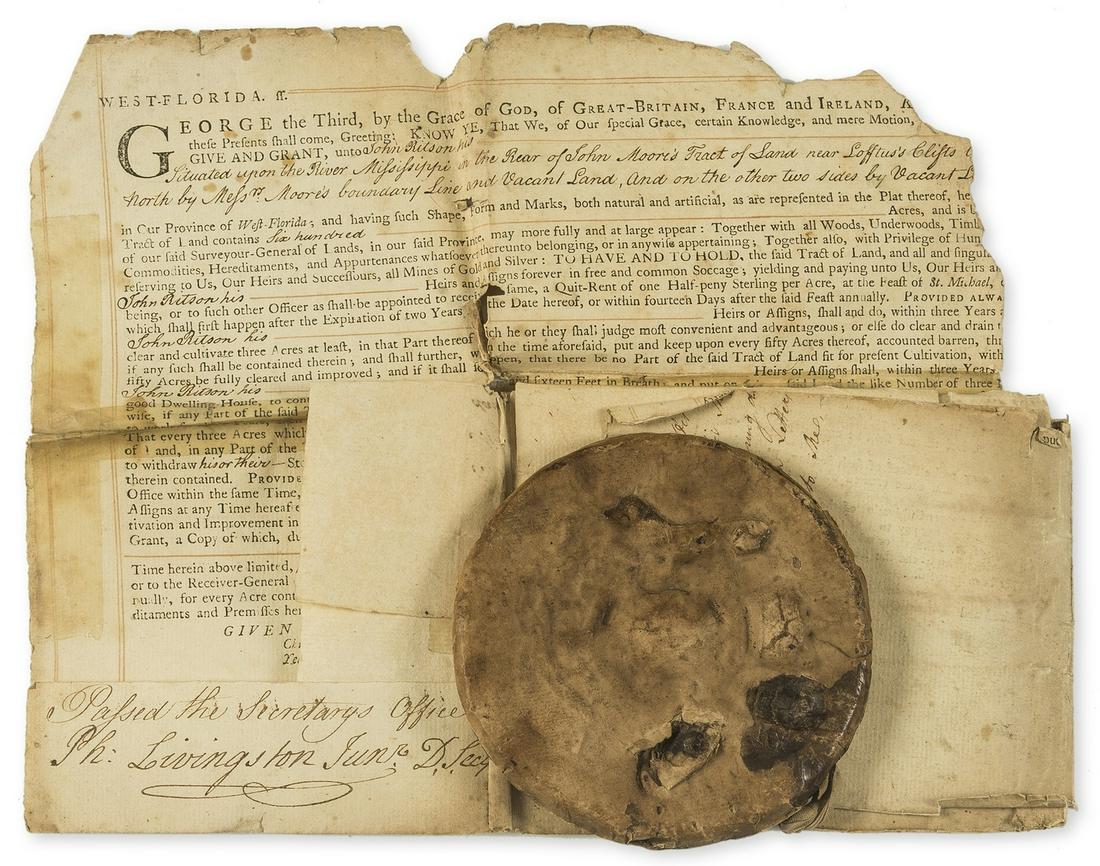 WEST-FLORIDA. ſſ.
GEORGE the Third, by the Grace of GOD, of GREAT-BRITAIN, FRANCE and IRELAND,
theſe Preſents ſhall come, Greeting: KNOW YE, That We, of Our ſpecial Grace, certain Knowledge, and mere Motion,
GIVE AND GRANT, unto John Ritson his
Situated upon the River Mississippi in the Rear of John Moore's Tract of Land near Lofftus's Clifts
North by Messrs. Moore's boundary Line and Vacant Land, And on the other two sides by Vacant
in Our Province of West-Florida; and having ſuch Shape, Form and Marks, both natural and artificial, as are repreſented in the Plat thereof,
Tract of Land contains Six hundred Acres, and is
of our ſaid Surveyour-General of Lands, in our ſaid Province, may more fully and at large appear: Together with all Woods, Underwoods,
Commodities, Hereditaments, and Appurtenances whatſoever thereunto belonging, or in anywiſe appertaining; Together alſo, with Privilege of
reſerving to Us, Our Heirs and Succeſſours, all Mines of Gold and Silver: TO HAVE AND TO HOLD, the ſaid Tract of Land, and all and
John Ritson his Heirs and Aſſigns forever in free and common Soccage; yielding and paying unto Us, Our Heirs
being, or to ſuch other Officer as ſhall be appointed to the ſame, a Quit-Rent of one Half-peny Sterling per Acre, at the Feaſt of St. Michael,
which ſhall firſt happen after the Expiration of two Years the Date hereof, or within fourteen Days after the ſaid Feaſt annually. PROVIDED
John Ritson his Heirs or Aſſigns, ſhall and do, within three Years
clear and cultivate three Acres at leaſt, in that Part thereof he or they ſhall judge moſt convenient and advantageous; or elſe do clear and drain
if any ſuch ſhall be contained therein; and ſhall further, the time aforeſaid, put and keep upon every fifty Acres thereof, accounted barren,
fifty Acres be fully cleared and improved; and if it ſhall that there be no Part of the ſaid Tract of Land fit for preſent Cultivation,
John Ritson his Heirs or Aſſigns ſhall, within three Years
good Dwelling-Houſe, to ſixteen Feet in Breath; and put on the like Number of three
wiſe, if any Part of the ſaid
That every three Acres which
of Land, in any Part of the
to withdraw his or their
therein contained.
Office within the ſame Time,
Aſſigns at any Time
tivation and Improvement in
Grant, a Copy of which,
Time herein above limited,
or to the Receiver-General
nually, for every Acre
ditaments and Premiſſes
GIVEN
Passed the Secretarys Office
Ph: Livingston Junr. D. Secy